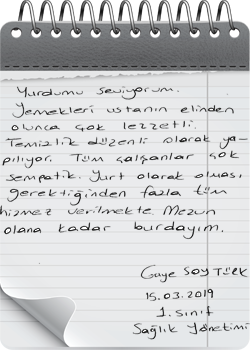 Yurdumu seviyorum.
Yemekleri ustanın elinden
olunca çok lezzetli.
Temizlik düzenli olarak ya-
pılıyor. Tüm çalşanlar çok
sempatik. Yurt olarak olması
gerektiğinden fazla tüm
hizmez verilmekte. Mezun
olana kadar burdayım.
Gaye SOYTÜRK
15.03.2019
1. sınıf
Sağlık Yönetimi